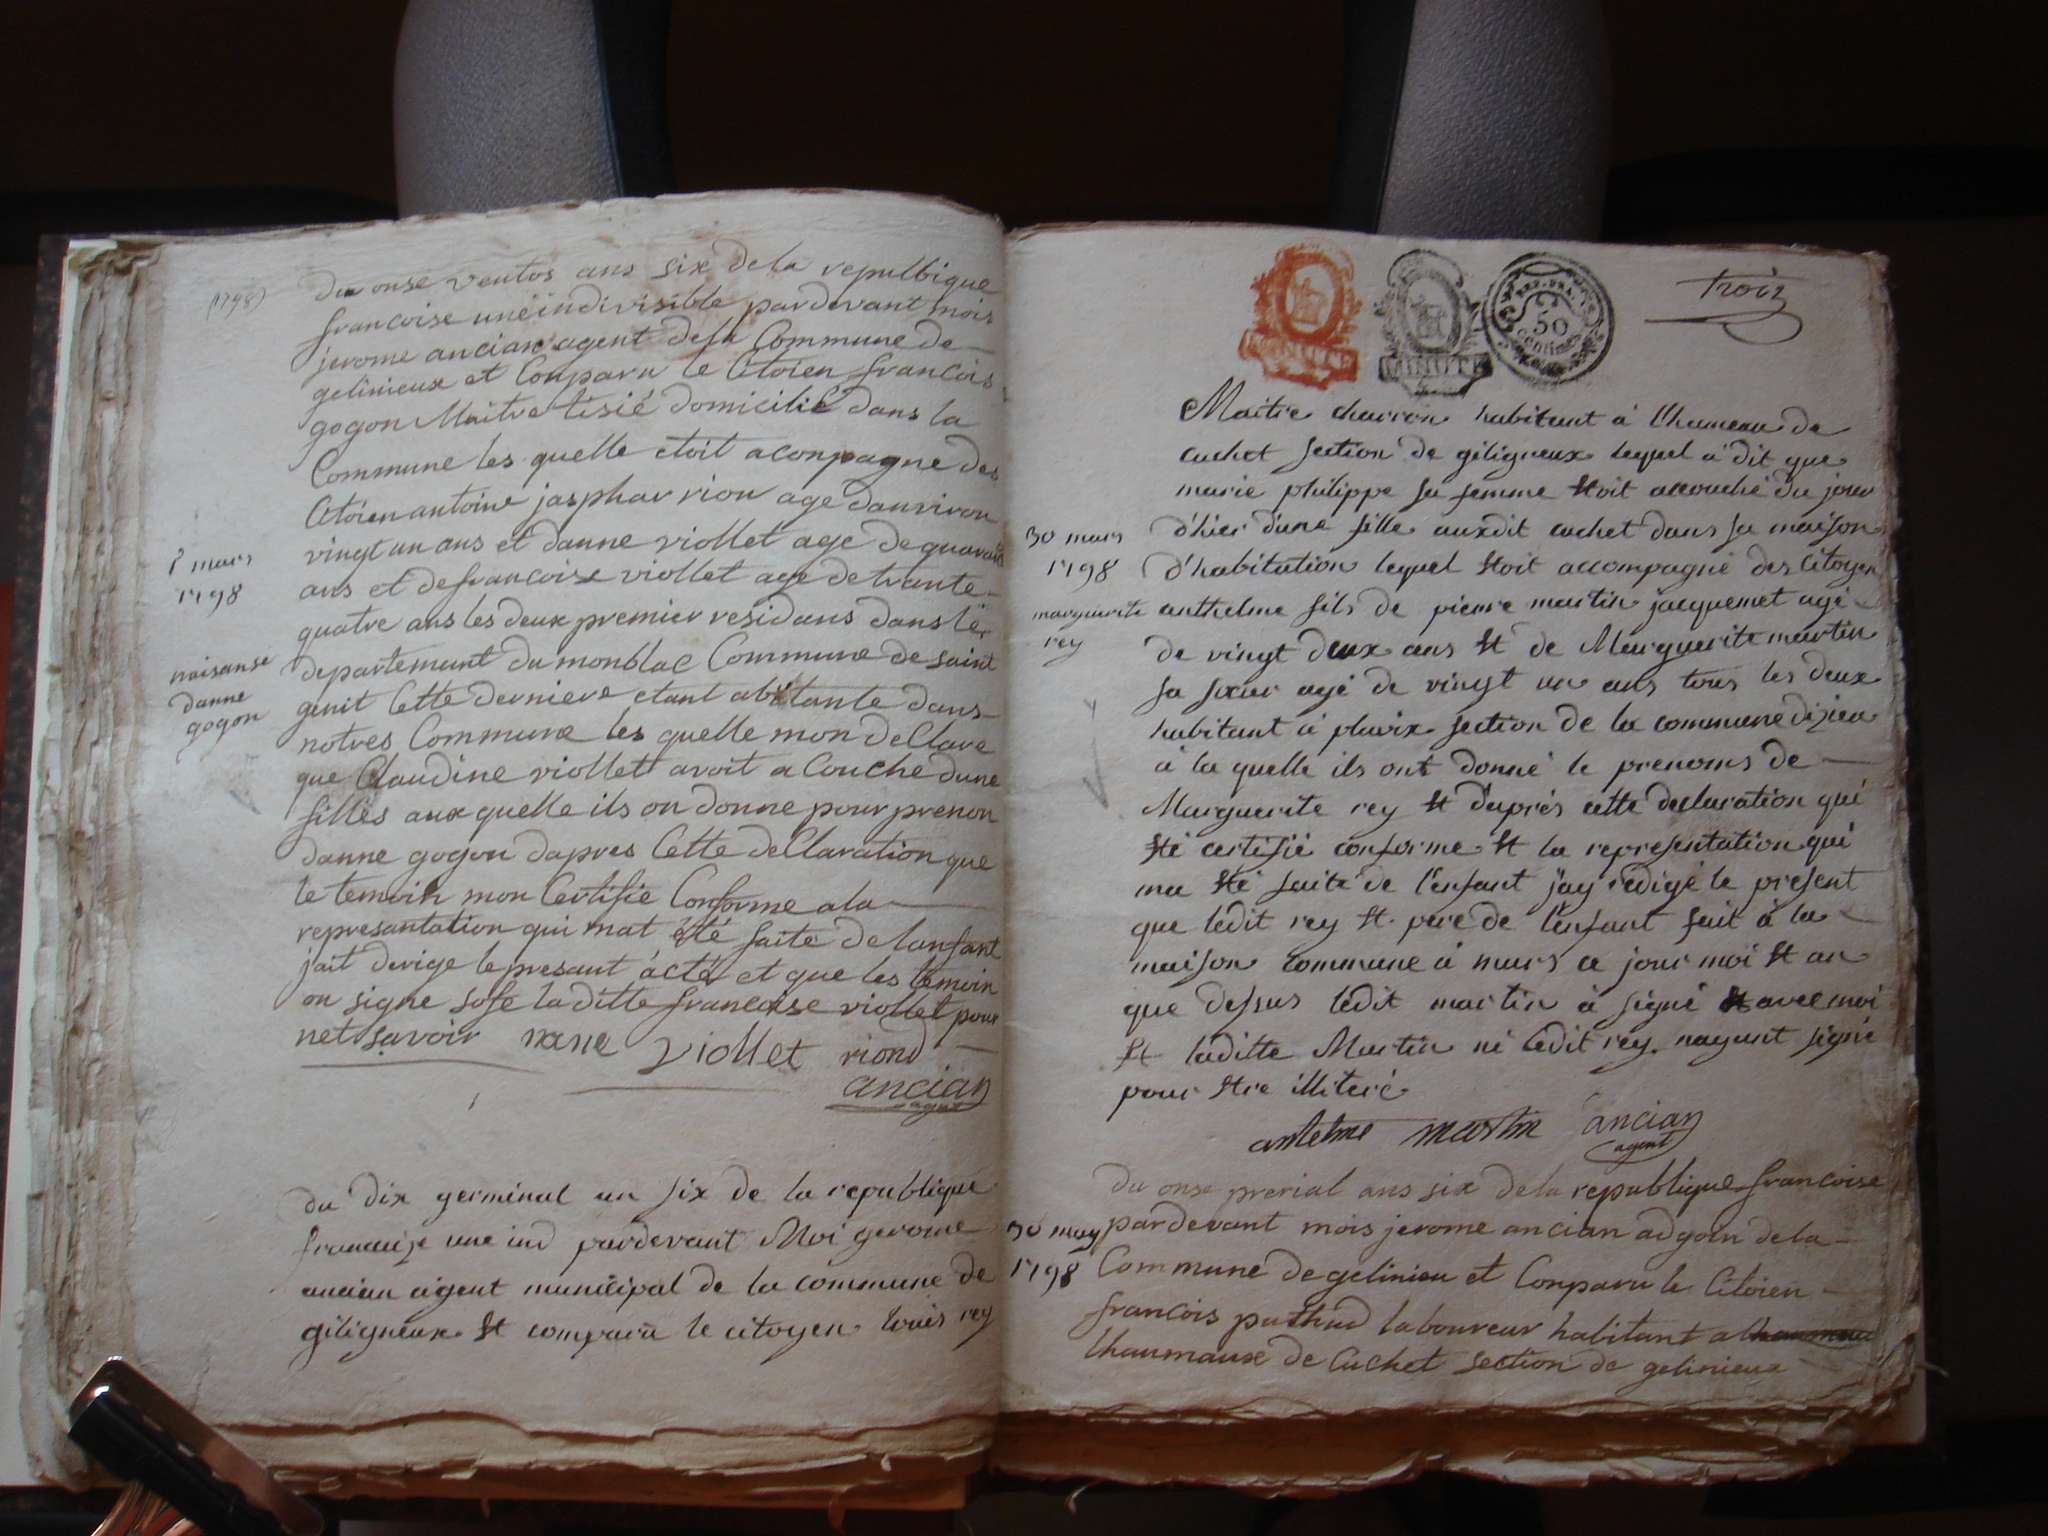 (1798)
du onse ventos ans six de la repulbique
francoise une indivisible par devant mois
jerome ancian agent de la Commune de
gelinieux et Conparu le Citoien francois
gogon Maitre tisié domicilié dans la
Commune les quelle etoit aconpagne des
Citoien antoine jasphar rion age danviron
vingt un ans et danne viollet age de quarante
ans et de francoise viollet age de trante
quatre ans les deux premier residans dans le
departemant du monblac Commune de saint
genit Cette derniere etant abitante dans
notres Commune les quelle mon deClare
que Claudine viollet avoit a Couche dune
filles aux quelle ils on donne pour prenon
danne gogon dapres Cette deClaration que
le temoin mon Certifie Conforme a la
represantation qui mat été faite de lanfant
jait derige le presant acté et que les temoin
on signe sofe la ditte francoise viollet pour
net savoir
viollet riond
ancian
agent
1 mars
1798
naisanse
danne
gogon
du dix germinal an six de la republique
francaize une ind pardevant Moi gerome
ancian agent municipal de la commune de
giligneux et comparu le citoyen louis rey
trois
MINUTE
REP. FRA.
50
Centimes
Maitre charron habitant à l'hameau de
cuchet section de giligneux lequel à dit que
marie philippe sa femme etoit accouché du jour
d'hier d'une fille auxdit cuchet dans sa maison
d'habitation lequel etoit accompagné des citoyen
anthelme fils de pierre martin jacquemet agé
de vingt deux ans et de Marguerite martin
sa soeur agé de vingt un ans tous les deux
habitant à plaix section de la commune dizieu
à la quelle ils ont donné le prenoms de
Marguerite rey et d'aprés cette declaration qui
eté certifié conforme et la representation qui
ma eté faite de l'enfant j'ay redigé le present
que ledit rey et pere de l'enfant fait à la
maison commune à murs ce jour moi et an
que dessus ledit martin à signé et avec moi
et laditte Martin ni ledit rey nayant signé
pour etre illiteré
antelme martin ancian
agent
30 mars
1798
marguerite
rey
du onse prerial ans six de la republique francoise
par devant mois jerome ancian adgoin de la
Commune de gelinieu et Conparu le Citoien
francois puthud laboureur habitant a
lhaumaux de Cuchet section de gelinieux
30 may
1798